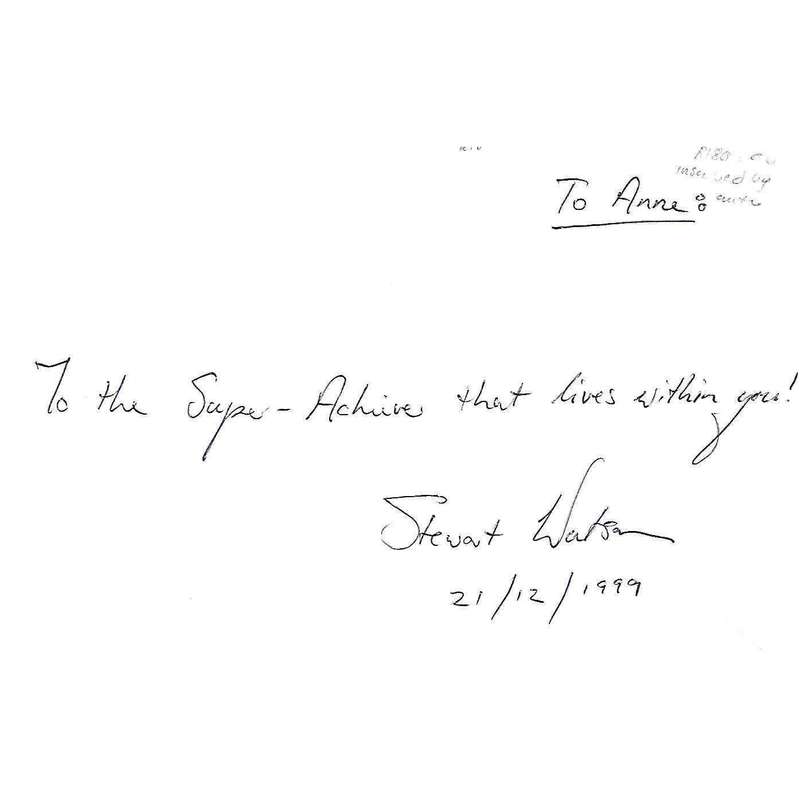 inscribed by
To Anne:
To the Super-Achiever that lives within you!
Stewart Watson
21/12/1999